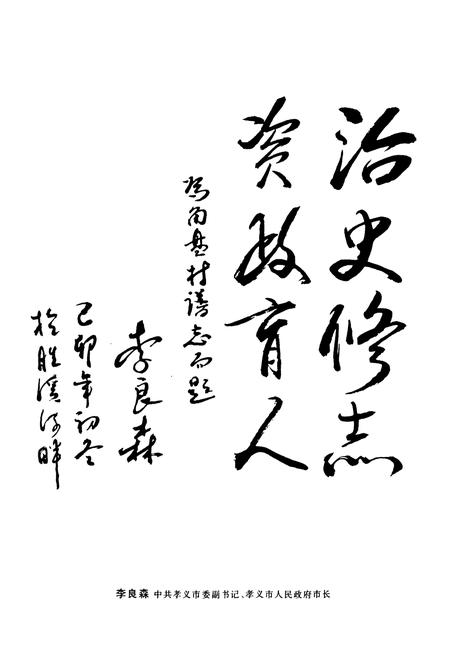 治史修志
资政育人
为角盘村谱志而题
李良森
己卯年初冬
於胜溪河畔
李良森 中共孝义市委副书记、孝义市人民政府市长